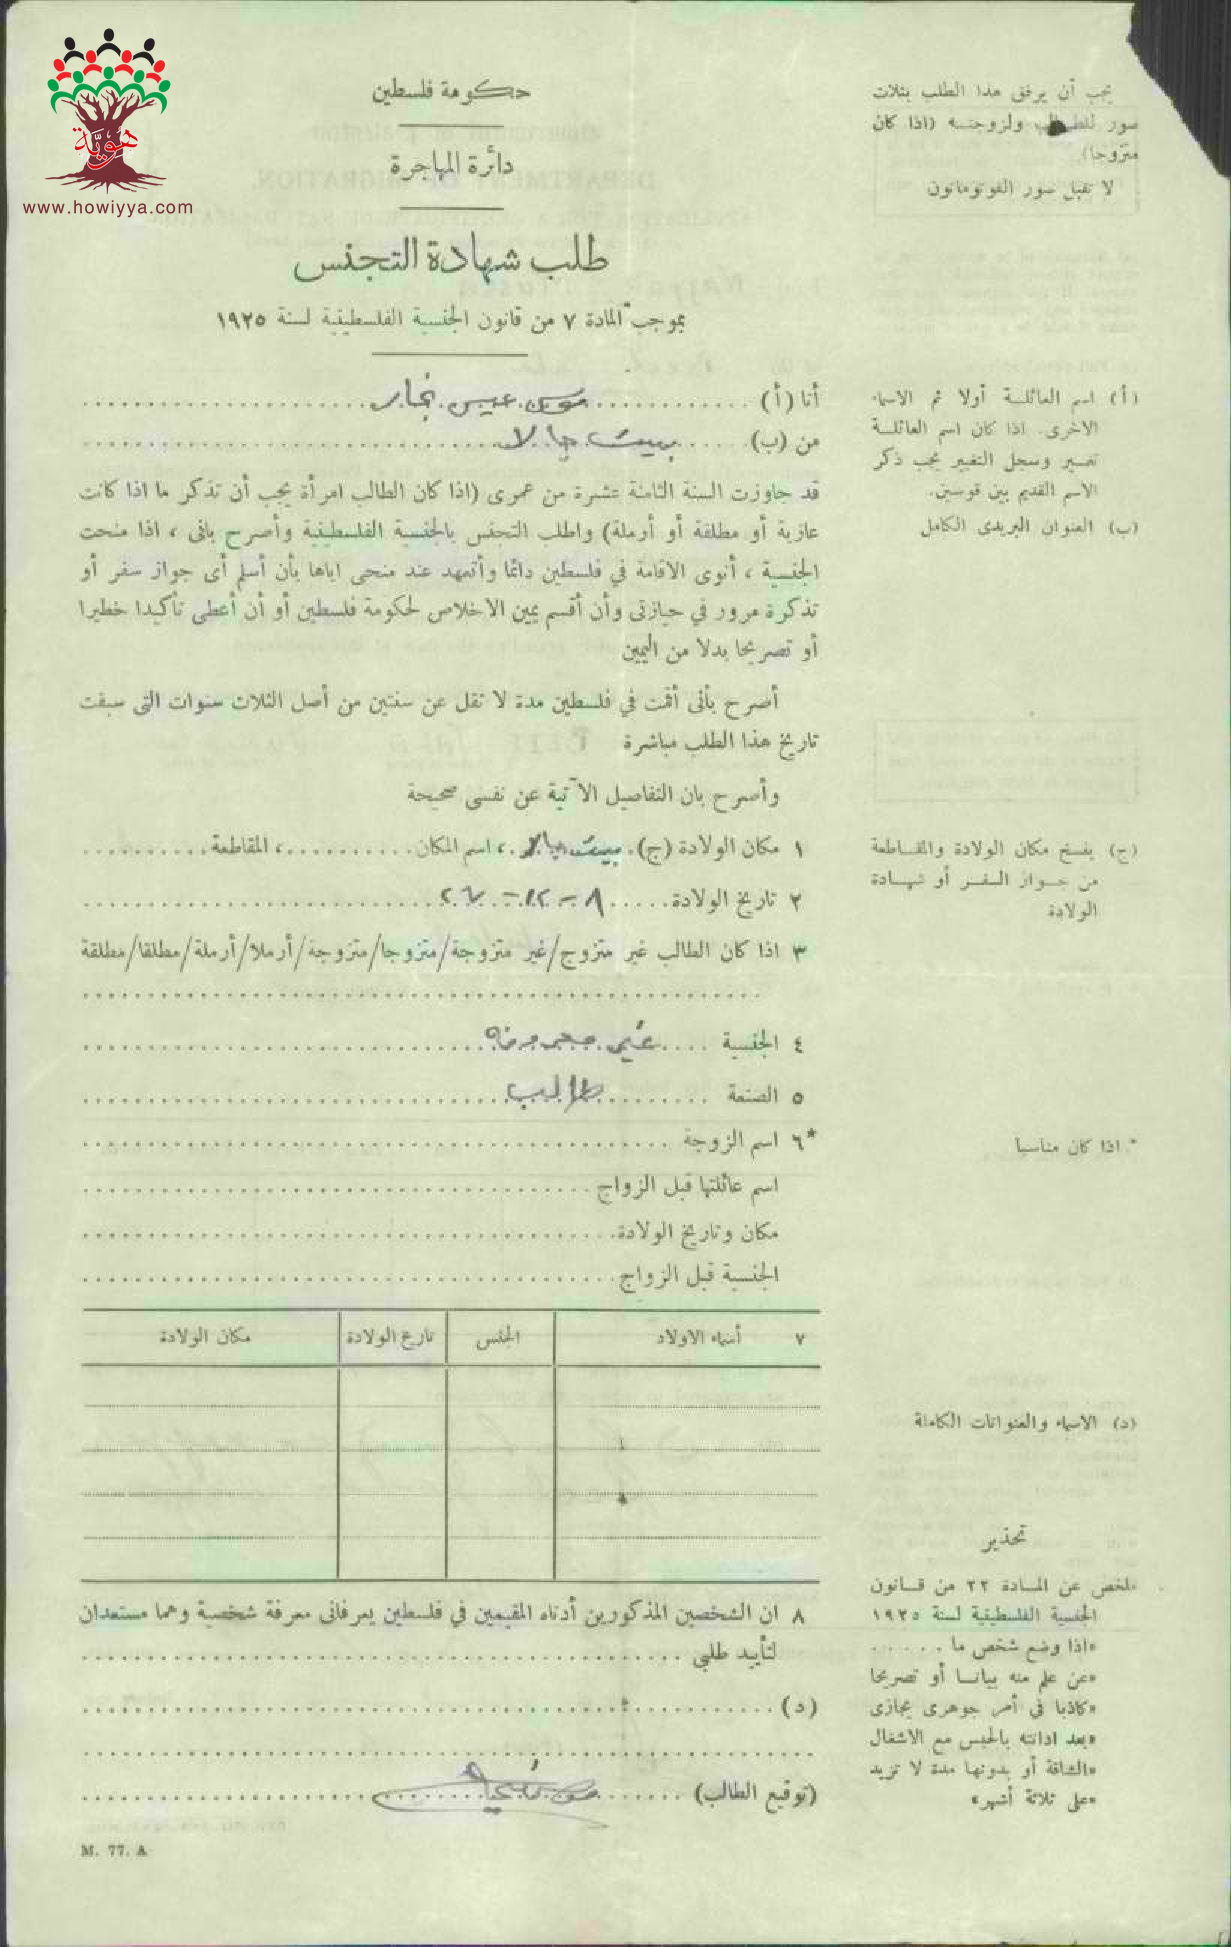 هويّة
www.howiyya.com
حكومة فلسطين
دائرة المهاجرة
طلب شهادة التجنس
بموجب المادة ٧ من قانون الجنسية الفلسطينية لسنة ١٩٢٥
يجب أن يرفق هذا الطلب بثلاث
صور للطالب ولزوجته (اذا كان
متزوجا).
لا تقبل صور الفوتوماتون
أنا (أ) موسى عيسى نجار
من (ب) بيت جالا
قد جاوزت السنة الثامنة عشرة من عمرى (اذا كان الطالب امرأة يجب أن تذكر ما اذا كانت
عازبة أو مطلقة أو أرملة) واطلب التجنس بالجنسية الفلسطينية وأصرح بانى ، اذا منحت
الجنسية ، أنوى الاقامة في فلسطين دائما وأتعهد عند منحى اياها بأن أسلم أى جواز سفر أو
تذكرة مرور في حيازتى وأن أقسم يمين الاخلاص لحكومة فلسطين أو أن أعطى تأكيدا خطيرا
أو تصريحا بدلا من اليمين
أصرح بأنى أقمت في فلسطين مدة لا تقل عن سنتين من أصل الثلاث سنوات التى سبقت
تاريخ هذا الطلب مباشرة
وأصرح بان التفاصيل الآتية عن نفسى صحيحة
١ مكان الولادة (ج) بيت جالا ، اسم المكان ، المقاطعة
٢ تاريخ الولادة ٨ - ١٢ - ٢٦
٣ اذا كان الطالب غير متزوج/غير متزوجة/متزوجا/متزوجة/أرملا/أرملة/مطلقا/مطلقة
٤ الجنسية غير معروفه
٥ الصنعة طالب
*٦ اسم الزوجة
اسم عائلتها قبل الزواج
مكان وتاريخ الولادة
الجنسية قبل الزواج
٧ أسماء الاولاد الجنس تاريخ الولادة مكان الولادة
٨ ان الشخصين المذكورين أدناه المقيمين في فلسطين يعرفانى معرفة شخصية وهما مستعدان
لتأييد طلبي
(د)
(توقيع الطالب)
M. 77. A
(أ) اسم العائلة أولا ثم الاسماء
الاخرى. اذا كان اسم العائلة
تغير وسجل التغيير يجب ذكر
الاسم القديم بين قوسين.
(ب) العنوان البريدى الكامل
(ج) ينسخ مكان الولادة والمقاطعة
من جواز السفر أو شهادة
الولادة
* اذا كان مناسبا
(د) الاسماء والعنوانات الكاملة
تحذير
ملخص عن المادة ٢٢ من قانون
الجنسية الفلسطينية لسنة ١٩٢٥
«اذا وضع شخص ما . . . . . .
«عن علم منه بيانا أو تصريحا
«كاذبا في أمر جوهرى يجازى
«بعد ادانته بالحبس مع الاشغال
«الشاقة أو بدونها مدة لا تزيد
«على ثلاثة أشهر»